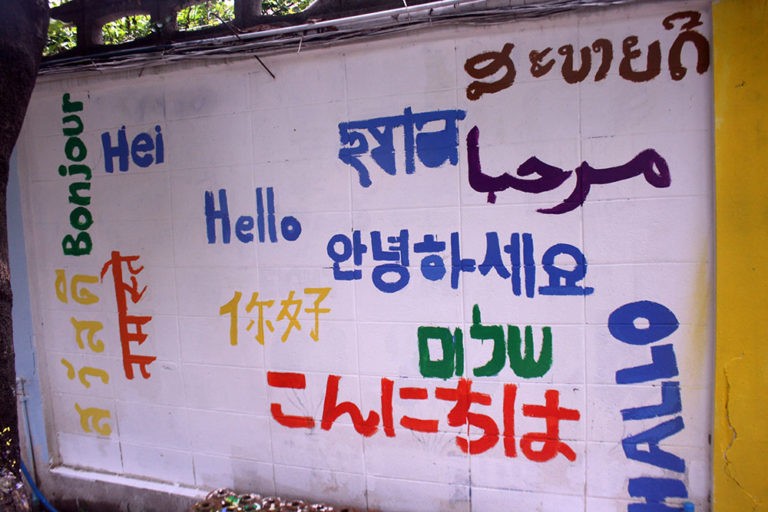 ສະບາຍດີ
Bonjour
Hei
مرحبا
Hello
안녕하세요
สวัสดี
नमस्ते
你好
שלום
こんにちは
HALLO